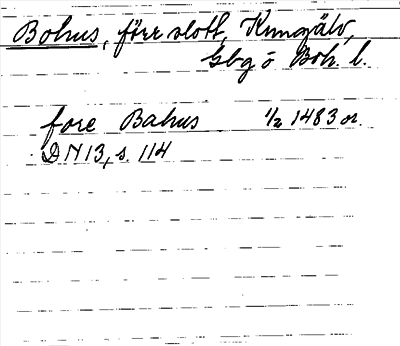 Bohus, förr slott, Kungälv,
Gbg o Boh. l.
fore Bahus 1/2 1483 or.
DN 13, s. 114